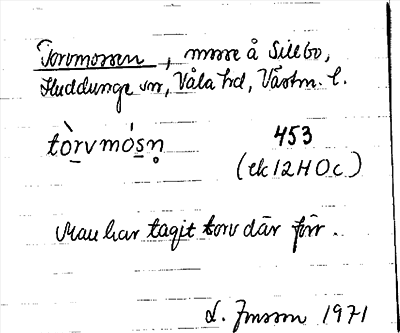 Torvmossen, mosse å Sillbo,
Huddunge sn, Våla hd, Västm. l.
tòrvmósn̥ 453
(ek 12H 0c)
Man har tagit torv där förr.
L. Jonsson 1971